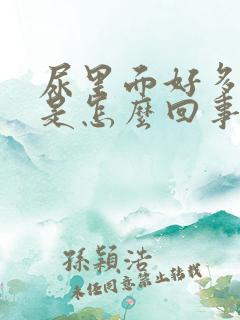 尿里面好多
是怎麼回事
孫穎浩
未经同意禁止转载